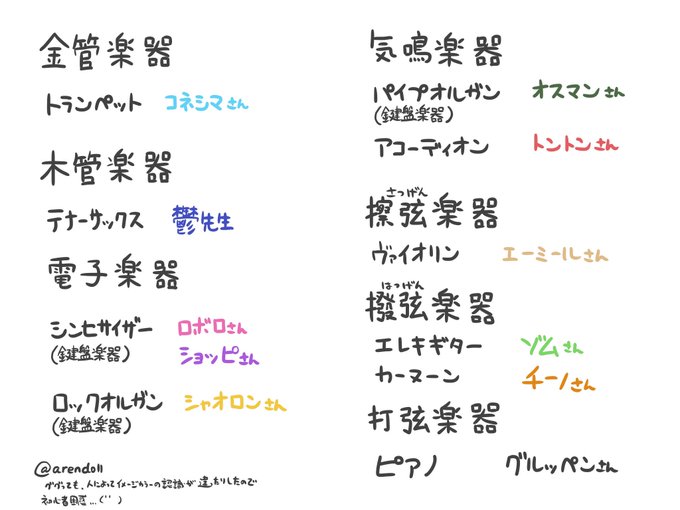 金管楽器
トランペット コネシマさん
木管楽器
テナーサックス 鬱先生
電子楽器
シンセサイザー ロボロさん
(鍵盤楽器) ショッピさん
ロックオルガン シャオロンさん
(鍵盤楽器)
@arendoll
ググっても、人によってイメージカラーの認識が違ったりしたので
初心者困惑…(¨ )
気鳴楽器
パイプオルガン オスマンさん
(鍵盤楽器)
アコーディオン トントンさん
さつげん
擦弦楽器
ヴァイオリン エーミールさん
はつげん
撥弦楽器
エレキギター ゾムさん
カーヌーン チーノさん
打弦楽器
ピアノ グルッペンさん